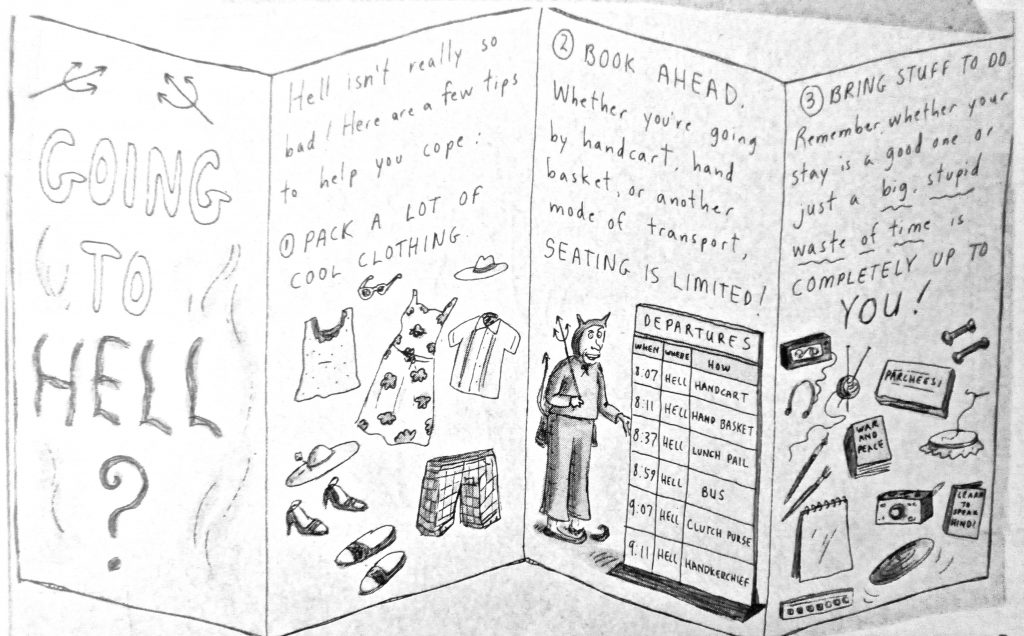 GOING
TO
HELL
?
Hell isn't really so
bad! Here are a few tips
to help you cope:
① PACK A LOT OF
COOL CLOTHING.
② BOOK AHEAD.
Whether you're going
by handcart, hand
basket, or another
mode of transport,
SEATING IS LIMITED!
DEPARTURES
WHEN WHERE HOW
8:07 HELL HANDCART
8:11 HELL HAND BASKET
8:37 HELL LUNCH PAIL
8:59 HELL BUS
9:07 HELL CLUTCH PURSE
9:11 HELL HANDKERCHIEF
③ BRING STUFF TO DO.
Remember, whether your
stay is a good one or
just a big, stupid
waste of time is
COMPLETELY UP TO
YOU!
PARCHEESI
WAR
AND
PEACE
LEARN
TO
SPEAK
HINDI!